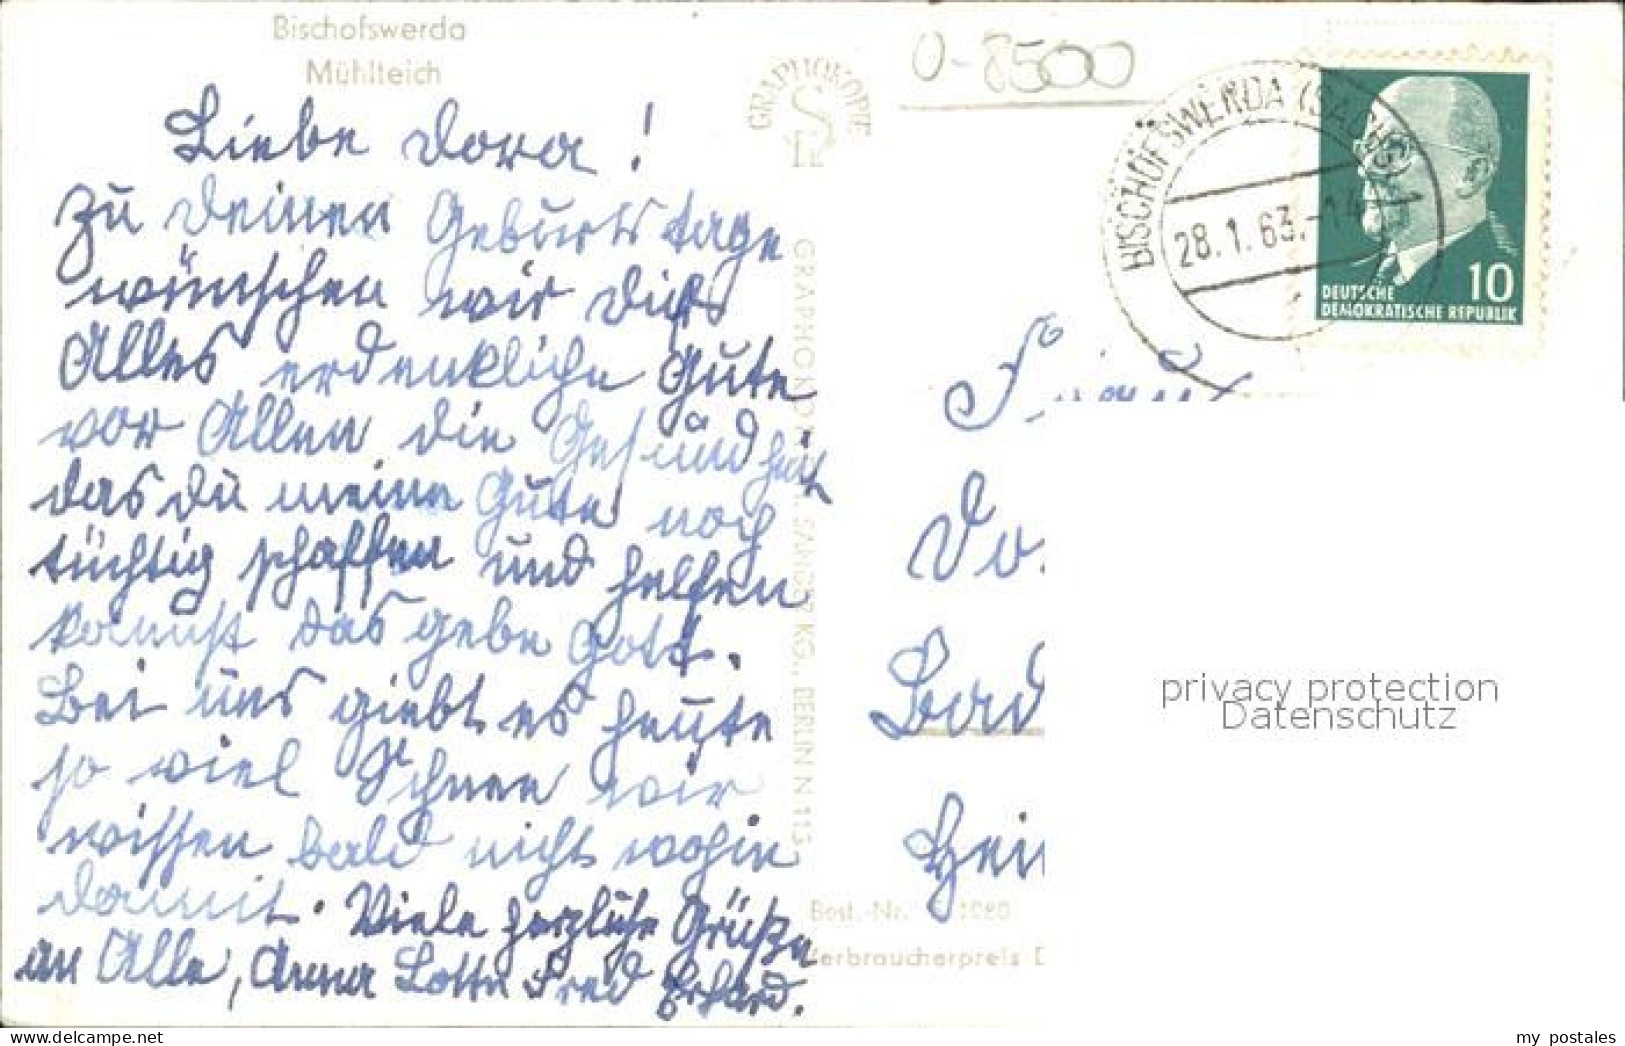 Bischofswerda
Mühlteich
Liebe Dora!
Zu deinen Geburtstage
wünschen wir dich
Alles erdenkliche Gute
vor Allen die Gesundheit
das du meine Gute noch
tüchtig schaffen und helfen
kannst das gebe Gott.
Bei uns giebt es heute
so viel Schnee wir
wissen bald nicht wohin
damit. Viele herzliche Grüße
an Alle, Anna Lotte Fred Erhard.
GRAPHOKOPIE
GRAPHOKOPIE H. SANDER KG., BERLIN N 113
Best.-Nr. 1080
Verbraucherpreis D
0-8500
BISCHOFSWERDA (SACHS)
28.1.63.-14
10
DEUTSCHE
DEMOKRATISCHE REPUBLIK
Frau
Do
Bad
Hein
privacy protection
Datenschutz
my postales